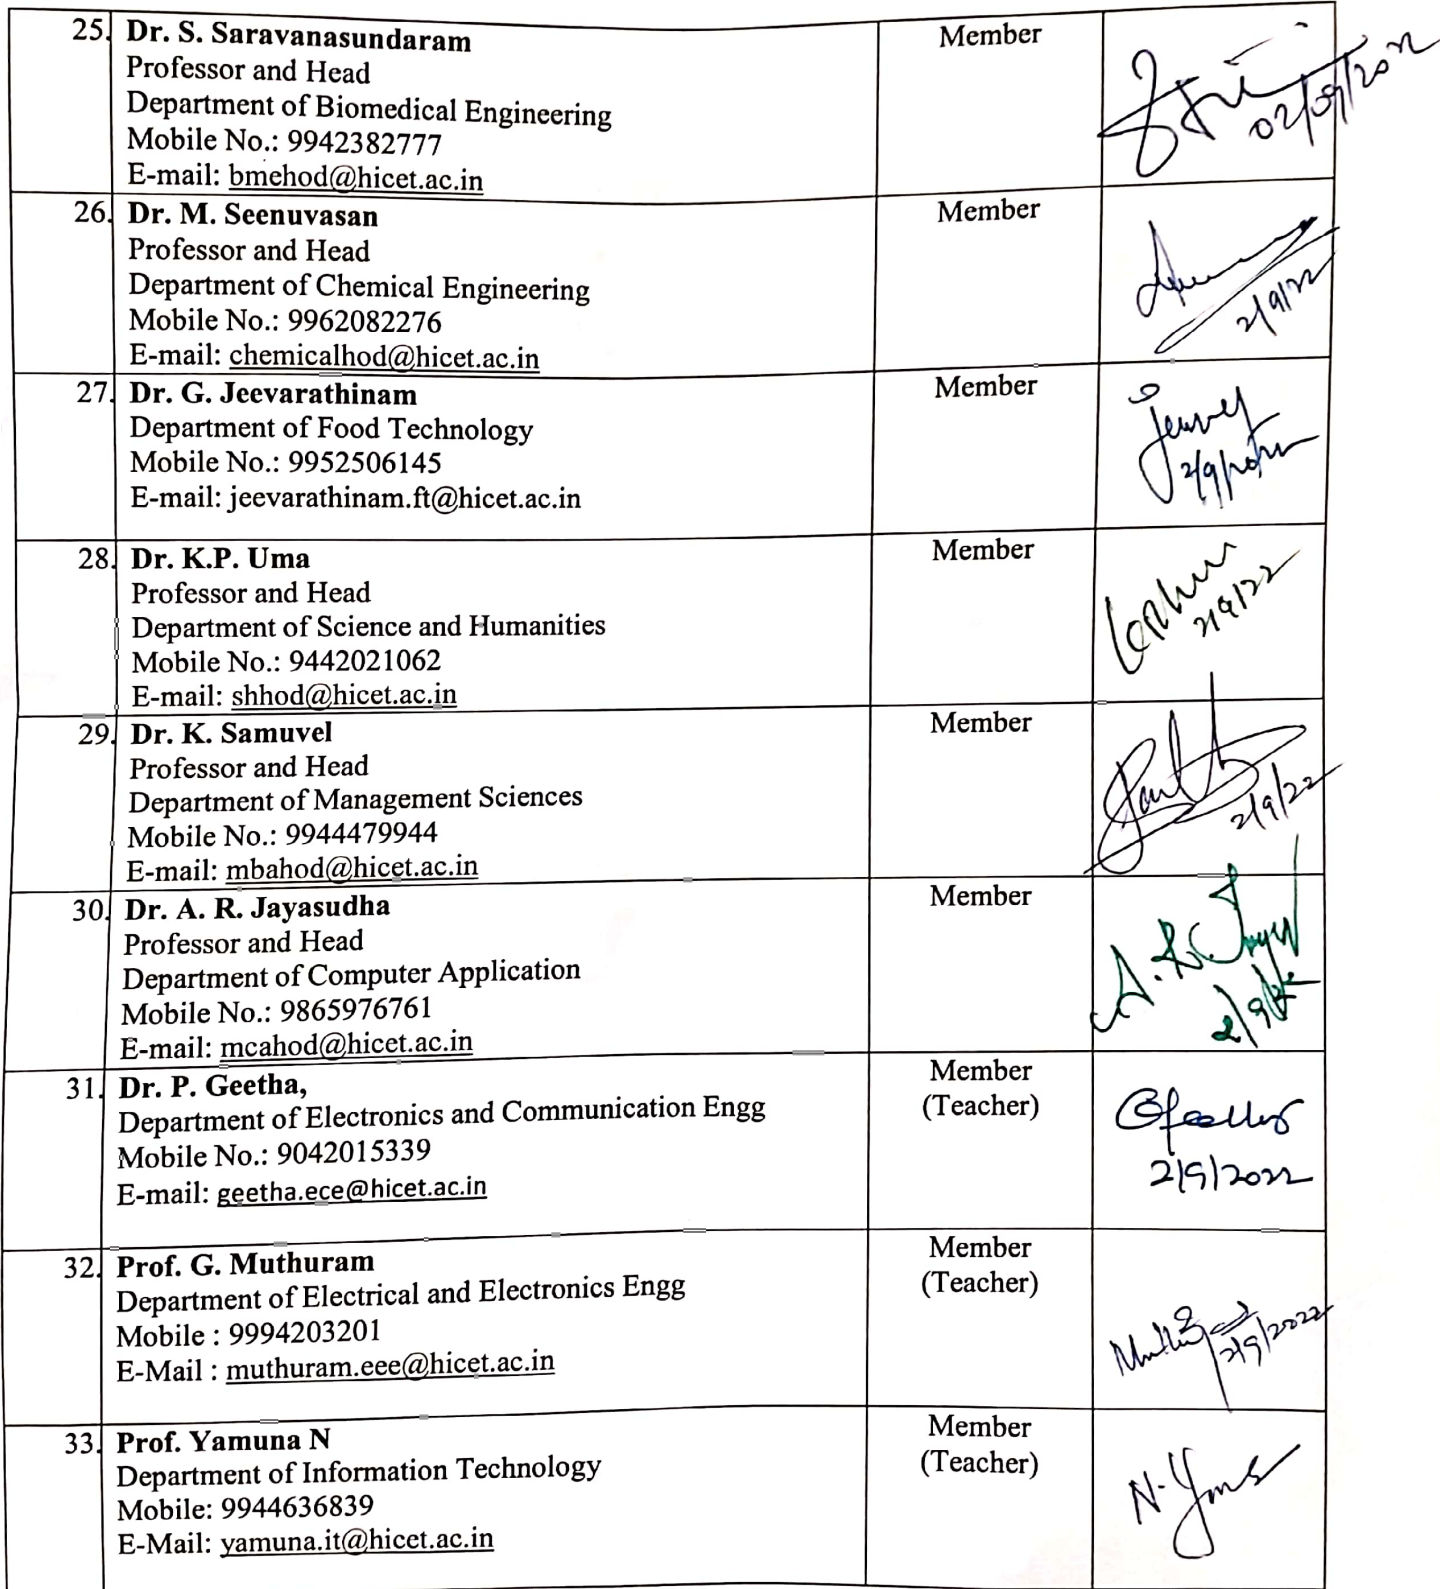 25. Dr. S. Saravanasundaram
Professor and Head
Department of Biomedical Engineering
Mobile No.: 9942382777
E-mail: bmehod@hicet.ac.in
Member
02/09/2022
26. Dr. M. Seenuvasan
Professor and Head
Department of Chemical Engineering
Mobile No.: 9962082276
E-mail: chemicalhod@hicet.ac.in
Member
2/9/22
27. Dr. G. Jeevarathinam
Department of Food Technology
Mobile No.: 9952506145
E-mail: jeevarathinam.ft@hicet.ac.in
Member
2/9/2022
28. Dr. K.P. Uma
Professor and Head
Department of Science and Humanities
Mobile No.: 9442021062
E-mail: shhod@hicet.ac.in
Member
2/9/22
29. Dr. K. Samuvel
Professor and Head
Department of Management Sciences
Mobile No.: 9944479944
E-mail: mbahod@hicet.ac.in
Member
2/9/22
30. Dr. A. R. Jayasudha
Professor and Head
Department of Computer Application
Mobile No.: 9865976761
E-mail: mcahod@hicet.ac.in
Member
2/9/22
31. Dr. P. Geetha,
Department of Electronics and Communication Engg
Mobile No.: 9042015339
E-mail: geetha.ece@hicet.ac.in
Member
(Teacher)
2/9/2022
32. Prof. G. Muthuram
Department of Electrical and Electronics Engg
Mobile : 9994203201
E-Mail : muthuram.eee@hicet.ac.in
Member
(Teacher)
2/9/2022
33. Prof. Yamuna N
Department of Information Technology
Mobile: 9944636839
E-Mail: yamuna.it@hicet.ac.in
Member
(Teacher)